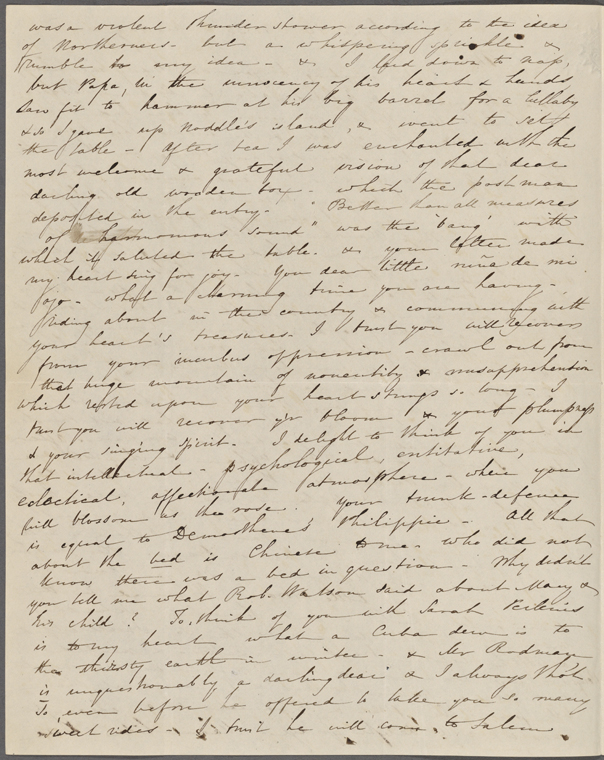 was a violent thunder shower according to the idea
of Northerners - but a whispering sprinkle &
rumble to my idea - & I laid down to nap,
but Papa, in the innocency of his heart & hands
saw fit to hammer at his big barrel for a lullaby
& so I gave up Noddle's island, & went to set
the table - After tea I was enchanted with the
most welcome & grateful vision of that dear
darling old wooden box - which the postman
deposited in the entry. "Better than all measures
of harmonious sound" was the 'bang' with
which it saluted the table. & your letter made
my heart sing for joy. You dear little niña de mi
ojo - what a charming time you are having -
riding about in the country & communing with
your heart's treasures. I trust you will recover
from your incubus oppression - crawl out from
that huge mountain of nonentity & misapprehension
which rested upon your heart strings so long - I
trust you will recover yr bloom & your plumpness
& your singing spirit. I delight to think of you in
that intellectual - psychological, entitative,
eclectical, affectionate atmosphere - where you
will blossom as the rose. Your trunk-defence
is equal to Demosthenes' Philippic - All that
about the bed is Chinese to me - who did not
know there was a bed in question - Why didn't
you tell me what Rob. Watson said about Mary &
his child? To think of you with Sarah
is to my heart what a Cuba dew is to
the thirsty earth in winter - & Mr Rodman
is unquestionably a darling dear & I always thot
so even before he offered to take you so many
sweet rides - I trust he will come to Salem